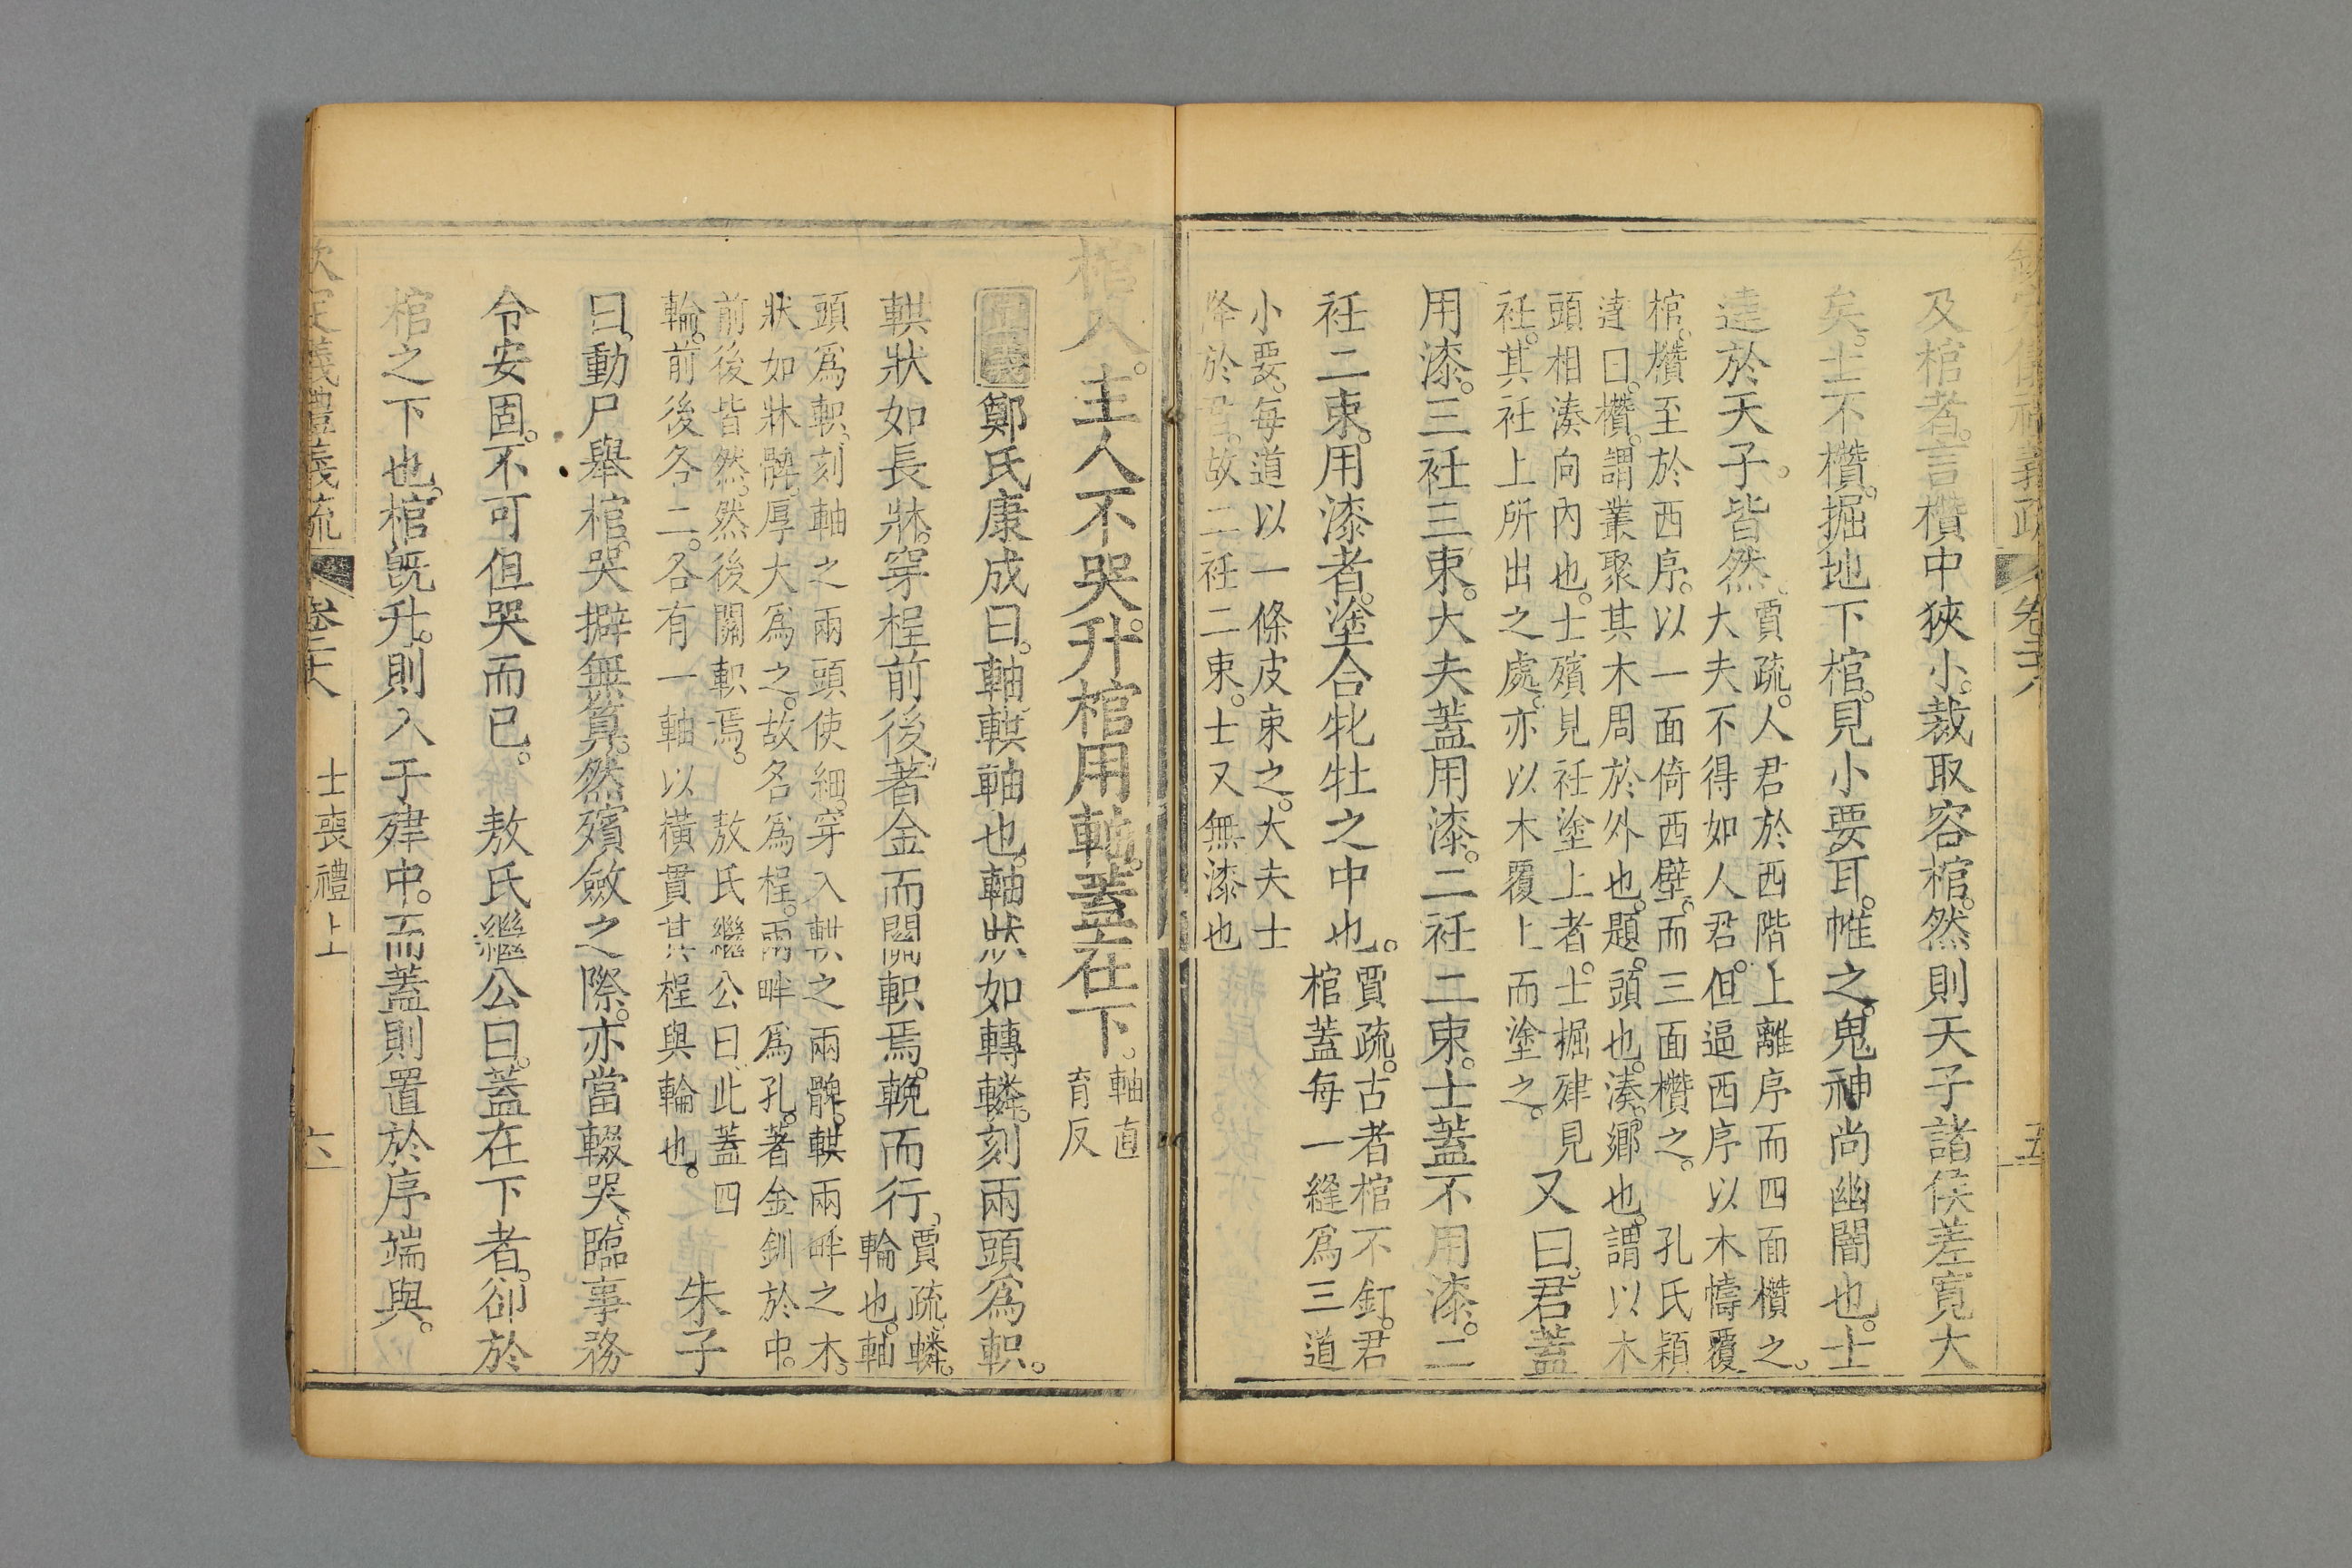 欽定儀禮義疏 卷二十八 五
及棺者。言欑中狹小。裁取容棺。然則天子諸侯差寬大
矣。士不欑。掘地下棺。見小要耳。帷之。鬼神尚幽闇也。士
達於天子。皆然。
賈疏。人君於西階上離序而四面欑之。
大夫不得如人君。但逼西序以木幬覆
棺。欑至於西序。以一面倚西壁。而三面欑之。 孔氏穎
達曰。欑。謂叢聚其木周於外也。題。頭也。湊。鄉也。謂以木
頭相湊向內也。士殯見衽塗上者。士掘肂見
衽。其衽上所出之處。亦以木覆上而塗之。
又曰。君蓋
用漆。三衽三束。大夫蓋用漆。二衽二束。士蓋不用漆。二
衽二束。用漆者。塗合牝牡之中也。
賈疏。古者棺不釘。君
棺蓋每一縫爲三道
小要。每道以一條皮束之。大夫士
降於君。故二衽二束。士又無漆也
棺入。主人不哭。升棺用軸。蓋在下。
軸直
育反
正義 鄭氏康成曰。軸。輁軸也。軸狀如轉轔。刻兩頭爲軹。
輁狀如長牀。穿桯前後。著金而關軹焉。輓而行。
賈疏。轔。
輪也。軸
頭爲軹。刻軸之兩頭使細。穿入輁之兩髀。輁兩畔之木。
狀如牀髀。厚大爲之。故名爲桯。兩畔爲孔。著金釧於中。
前後皆然。然後關軹焉。 敖氏繼公曰。此蓋四
輪。前後各二。各有一軸以橫貫其桯與輪也。
朱子
曰。動尸舉棺。哭擗無算。然殯斂之際。亦當輟哭。臨事務
令安固。不可但哭而已。 敖氏繼公曰。蓋在下者。卻於
棺之下也。棺既升。則入于肂中。而蓋則置於序端與。
欽定儀禮義疏 卷二十八 士喪禮上 六